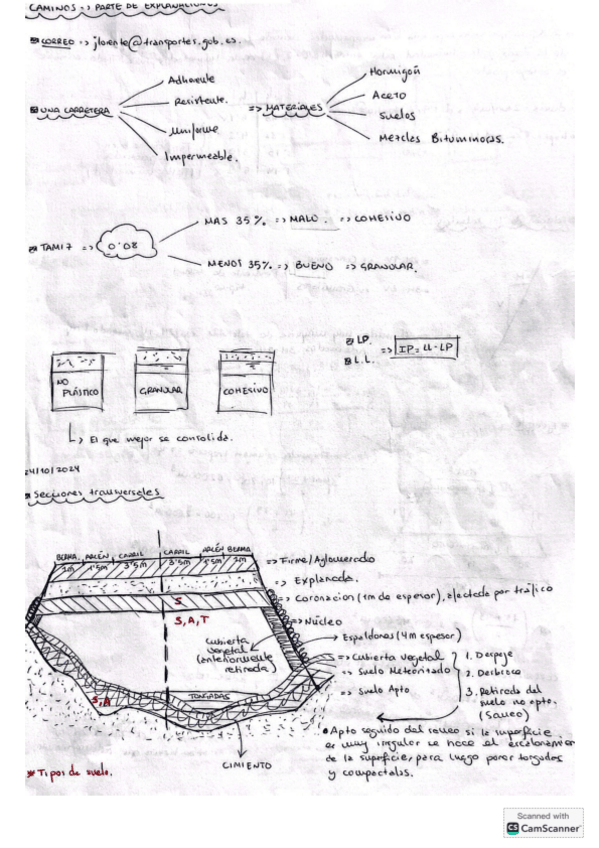 CAMINOS => PARTE DE EXPLANACIONES
CORREO => jlorente@transportes.gob.es
UNA CARRETERA
Adherente
Resistente.
Uniforme
Impermeable.
=> MATERIALES
Hormigón
Acero
Suelos
Mezclas Bituminosas.
TAMIZ => 0'08
MAS 35% => MALO => COHESIVO
MENOS 35% => BUENO => GRANULAR.
NO PLÁSTICO
GRANULAR
COHESIVO
LP.
L.L.
=> IP = LL-LP
El que mejor se consolida.
24/10/2024
Secciones transversales
BERMA ARCÉN CARRIL CARRIL ARCÉN BERMA
1m 1'5m 3'5m 3'5m 1'5m 1m
=> Firme/Aglomerado
=> Explanada.
S
=> Coronacion (1m de espesor), afectada por tráfico
S, A, T
=> Núcleo
Cubierta vegetal (anteriormente retirada)
Espaldones (4m espesor)
=> Cubierta vegetal
=> Suelo Meteorizado
=> Suelo Apto
1. Despeje
2. Desbroce
3. Retirada del suelo no apto. (Saneo)
S, A
TONGADAS
CIMIENTO
Apto seguido del saneo si la superficie
es muy irregular se hace el escalonamien
de la superficie, para luego poner tongadas
y compactalas.
* Tipos de suelo.
Scanned with
CS CamScanner